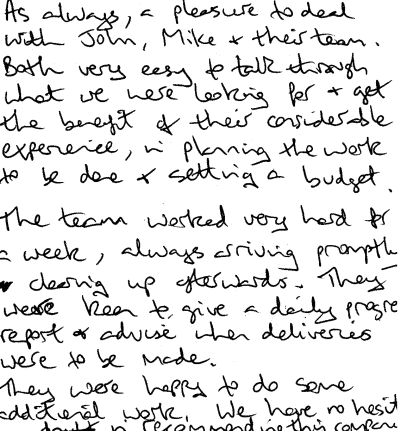 As always, a pleasure to deal
with John, Mike + their team.
Both very easy to talk through
what we were looking for + get
the benefit of their considerable
experience, in planning the work
to be done & setting a budget.
The team worked very hard for
a week, always arriving promptl
clearing up afterwards. They
were keen to give a daily progre
report & advise when deliveries
were to be made.
They were happy to do some
additional work. We have no hesit
doubt in recommending this compan